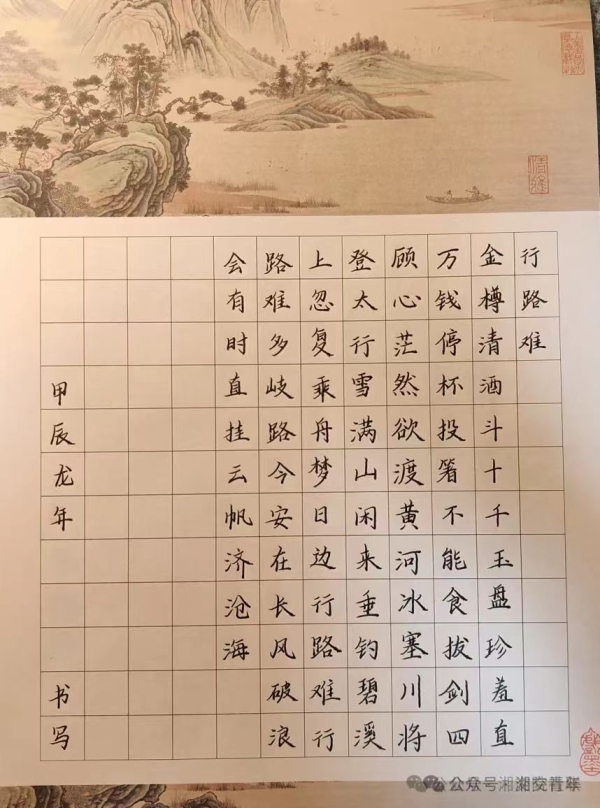 行路难
金樽清酒斗十千玉盘珍羞直
万钱停杯投箸不能食拔剑四
顾心茫然欲渡黄河冰塞川将
登太行雪满山闲来垂钓碧溪
上忽复乘舟梦日边行路难行
路难多歧路今安在长风破浪
会有时直挂云帆济沧海
甲辰龙年 书写
公众号